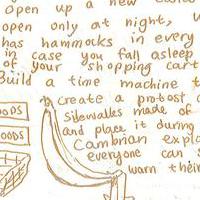 open up a new
open only at night,
has hammocks in every
in case you fall asleep
of your shopping cart
Build a time machine t
OODS
create a protost
sidewalks made of
OODS
and place it during
Cambrian explo
everyone can s
warn their